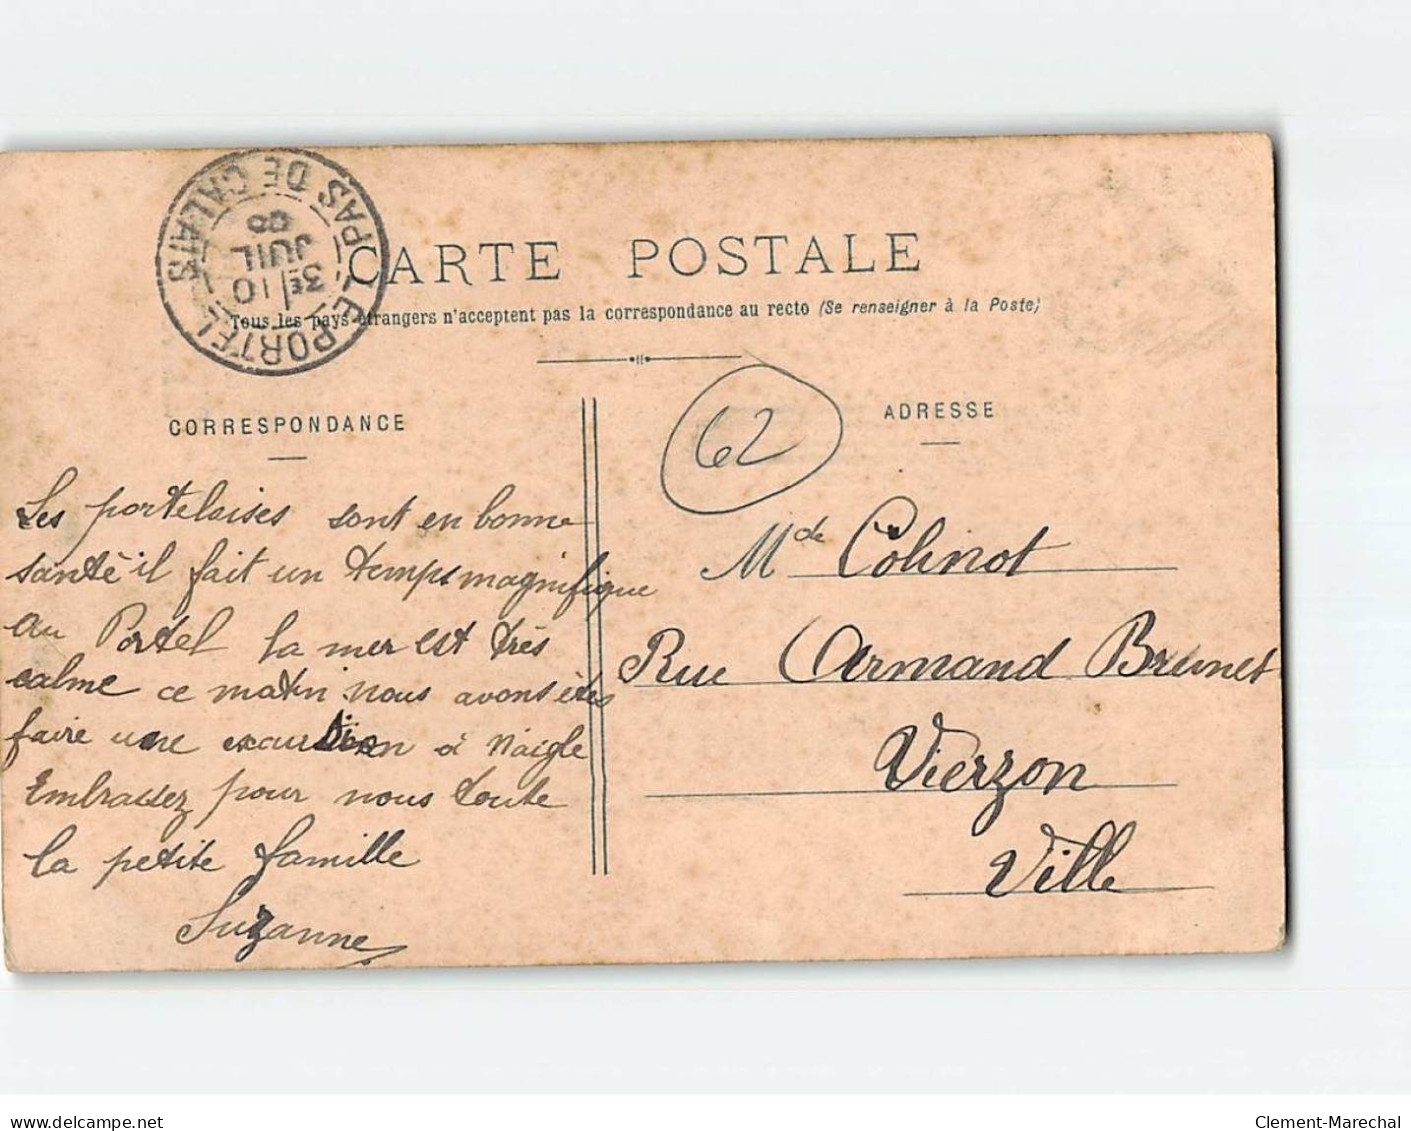 LE PORTEL
PAS DE CALAIS
3E 10
JUIL
CARTE POSTALE
Tous les pays étrangers n'acceptent pas la correspondance au recto (Se renseigner à la Poste)
CORRESPONDANCE
Les portelaises sont en bonne
santé il fait un temps magnifique
au Portel la mer est très
calme ce matin nous avons étés
faire une excursion à Naigle
Embrassez pour nous toute
la petite famille
Suzanne
62
ADRESSE
Mde Colinot
Rue Armand Brunet
Vierzon
Ville
www.delcampe.net
Clement-Marechal